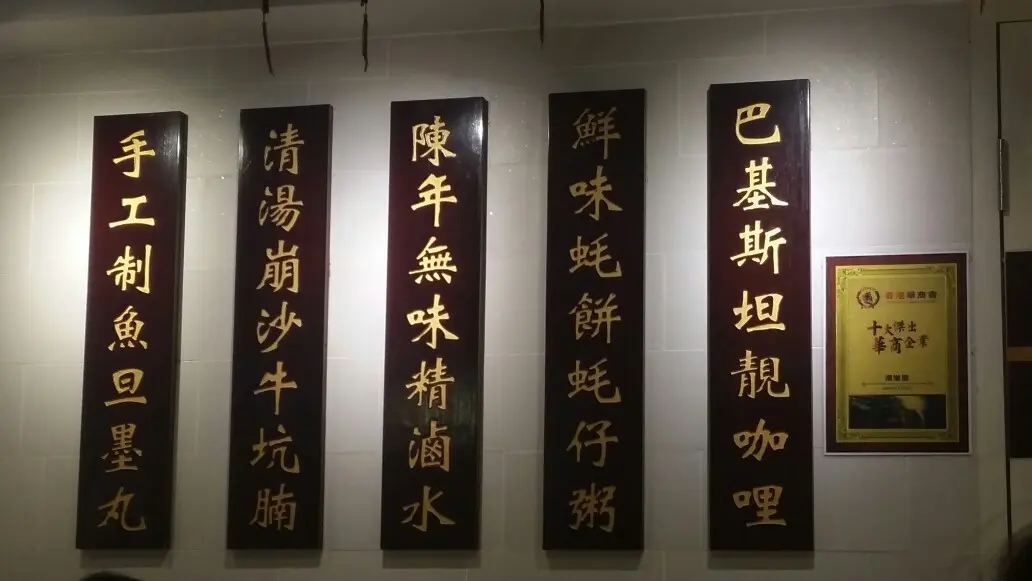 巴基斯坦靚咖哩
鮮味蚝餅蚝仔粥
陳年無味精滷水
清湯崩沙牛坑腩
手工制魚旦墨丸
香港華商會
十大傑出
華商企業